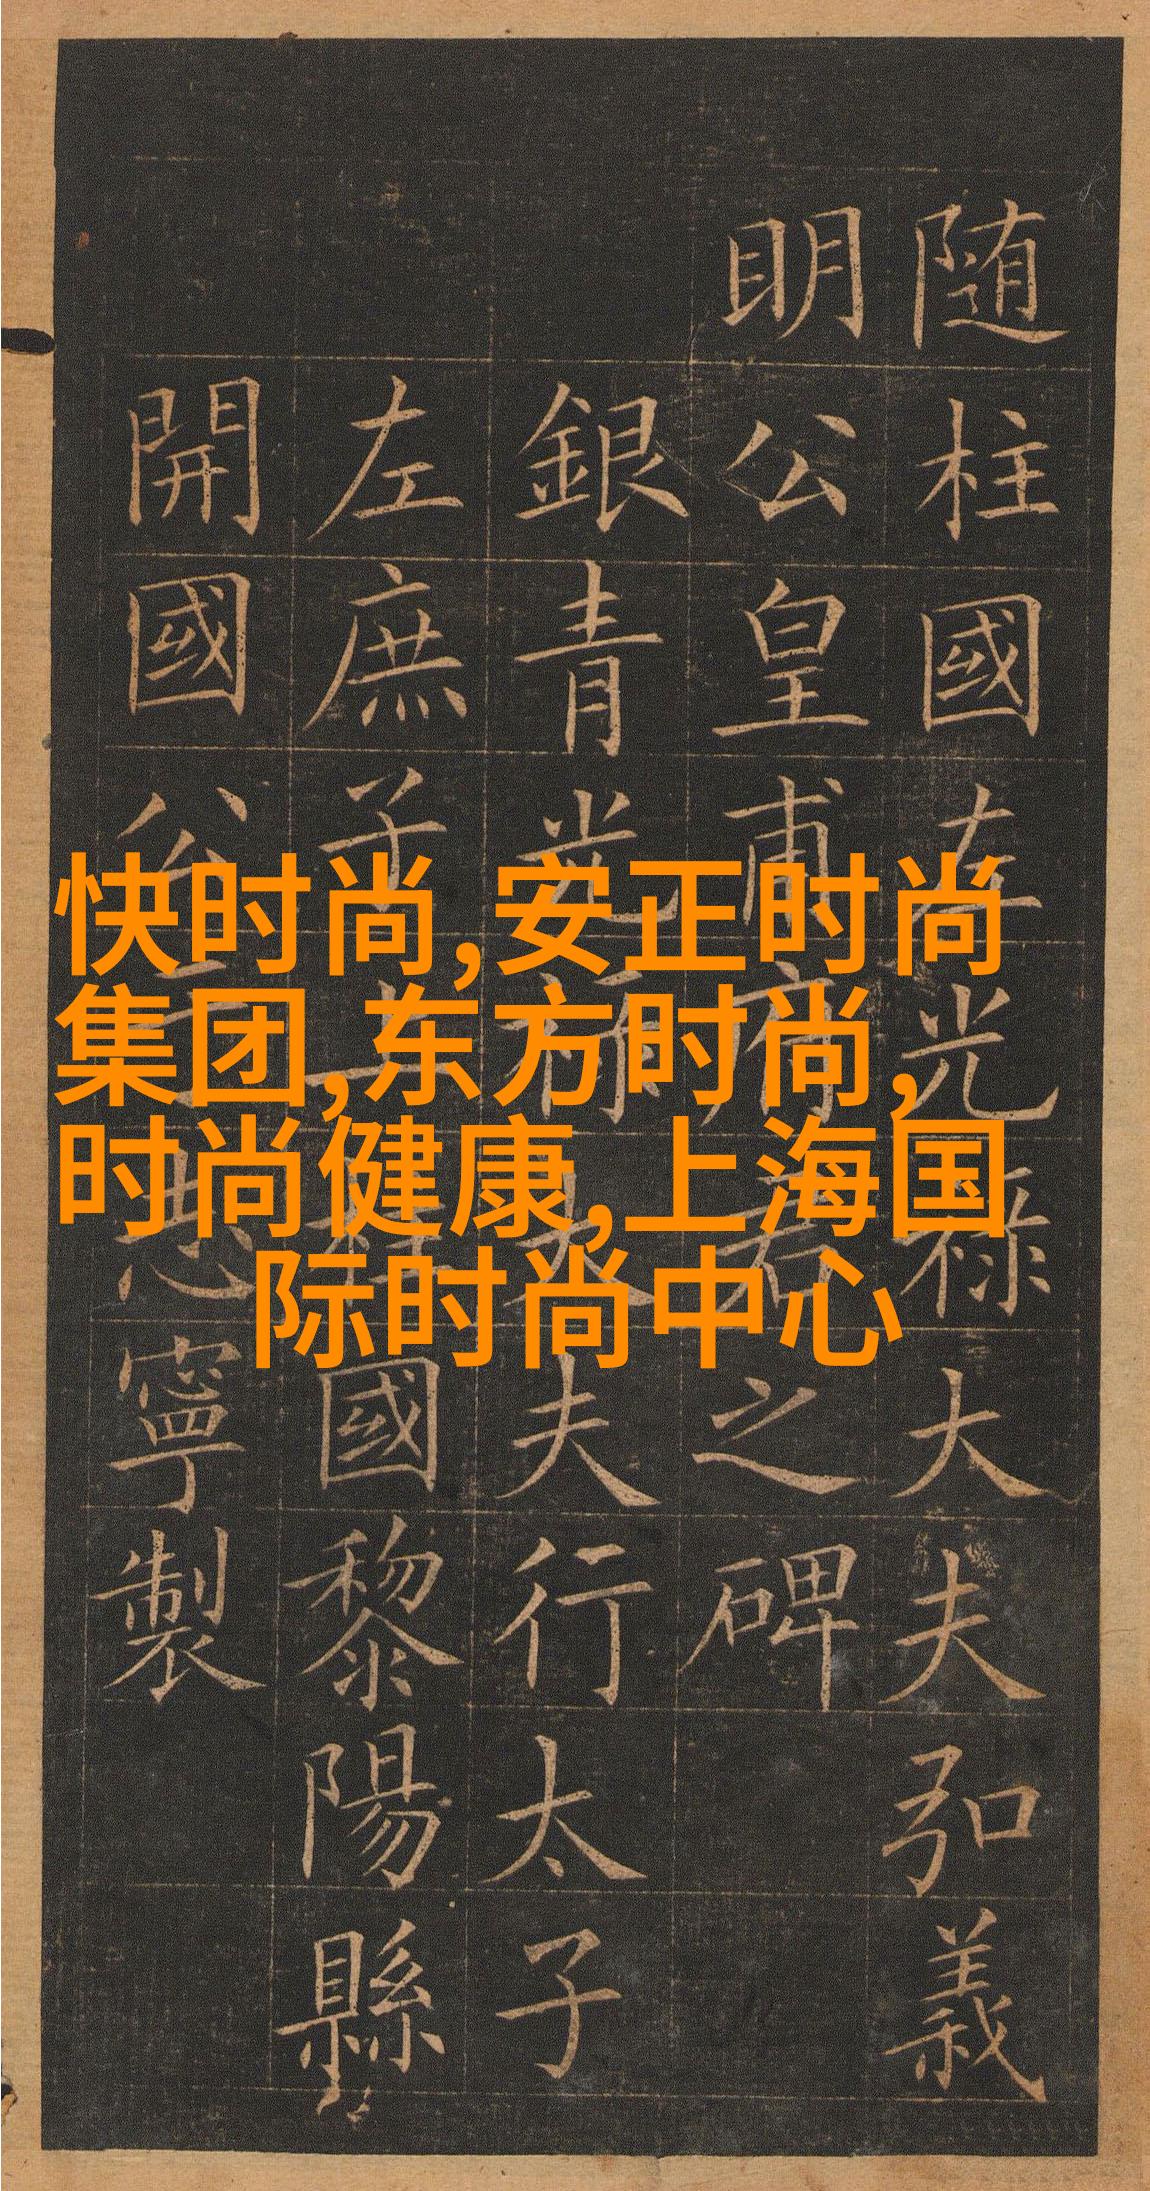 快时尚,安正时尚
集团,东方时尚,
时尚健康,上海国
际时尚中心
随柱國左光禄大夫弘義
明公皇甫府君之碑
銀青光祿大夫行太子
左庶子上柱國黎陽縣
開國公于志寧製